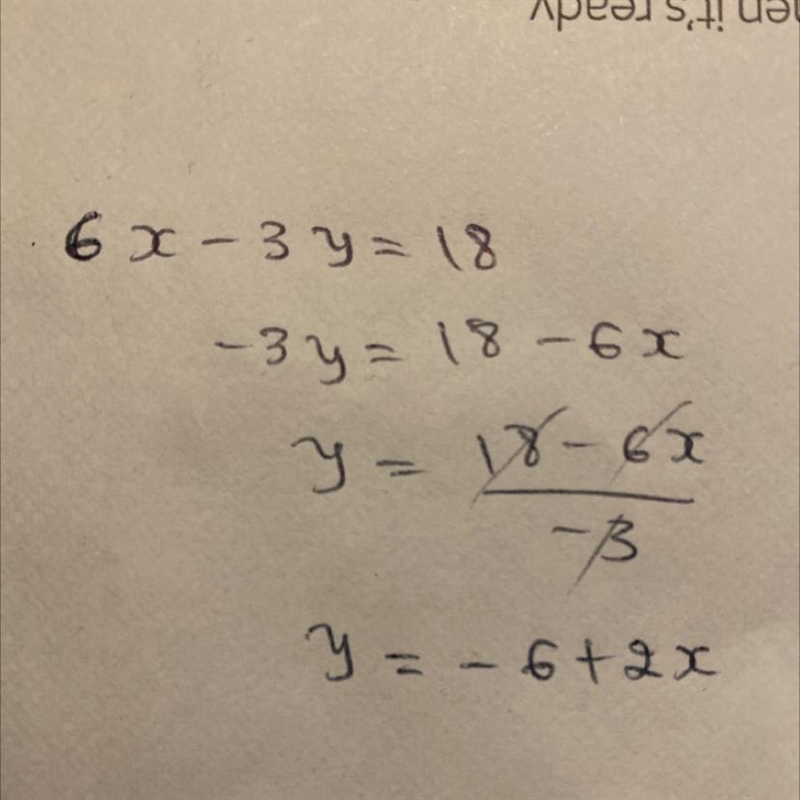 en it's ready
6x - 3y = 18
-3y = 18 - 6x
y = \frac{18 - 6x}{-3}
y = -6 + 2x